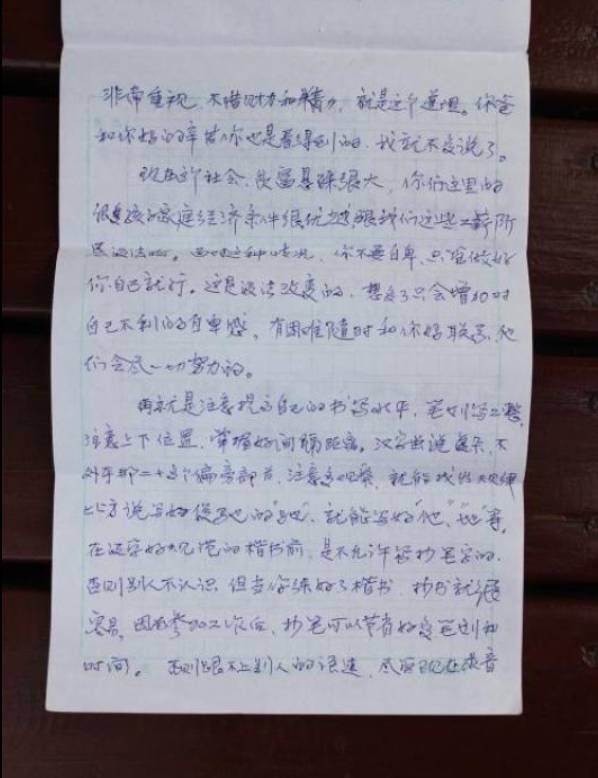 非常重视,不惜财力和精力,就是这个道理。你爸
和你妈的辛苦你也是看得到的,我就不多说了。
现在这个社会,贫富悬殊很大,你们这里的
很多孩子家庭经济条件很优越,跟我们这些工薪阶
层没法比。面对这种情况,你不要自卑,只管做好
你自己就行。这是没法改变的,想多了只会增加对
自己不利的自卑感,有困难随时和你妈联系,他
们会尽一切努力的。
再就是注意提高自己的书写水平,笔划写工整,
注意上下位置,掌握好间隔距离。汉字虽说复杂,不
外乎那二十多个偏旁部首,注意多观察,就能找出规律
比方说写好 的“也”,就能写好“他”、“地”等。
在没写好规范的楷书前,是不允许你抄笔字的,
否则别人不认识,但当你练好了楷书,抄书就很
容易,因为参加工作后,抄笔可以节省好多笔划和
时间。否则跟不上别人的语速,尽管现在录音